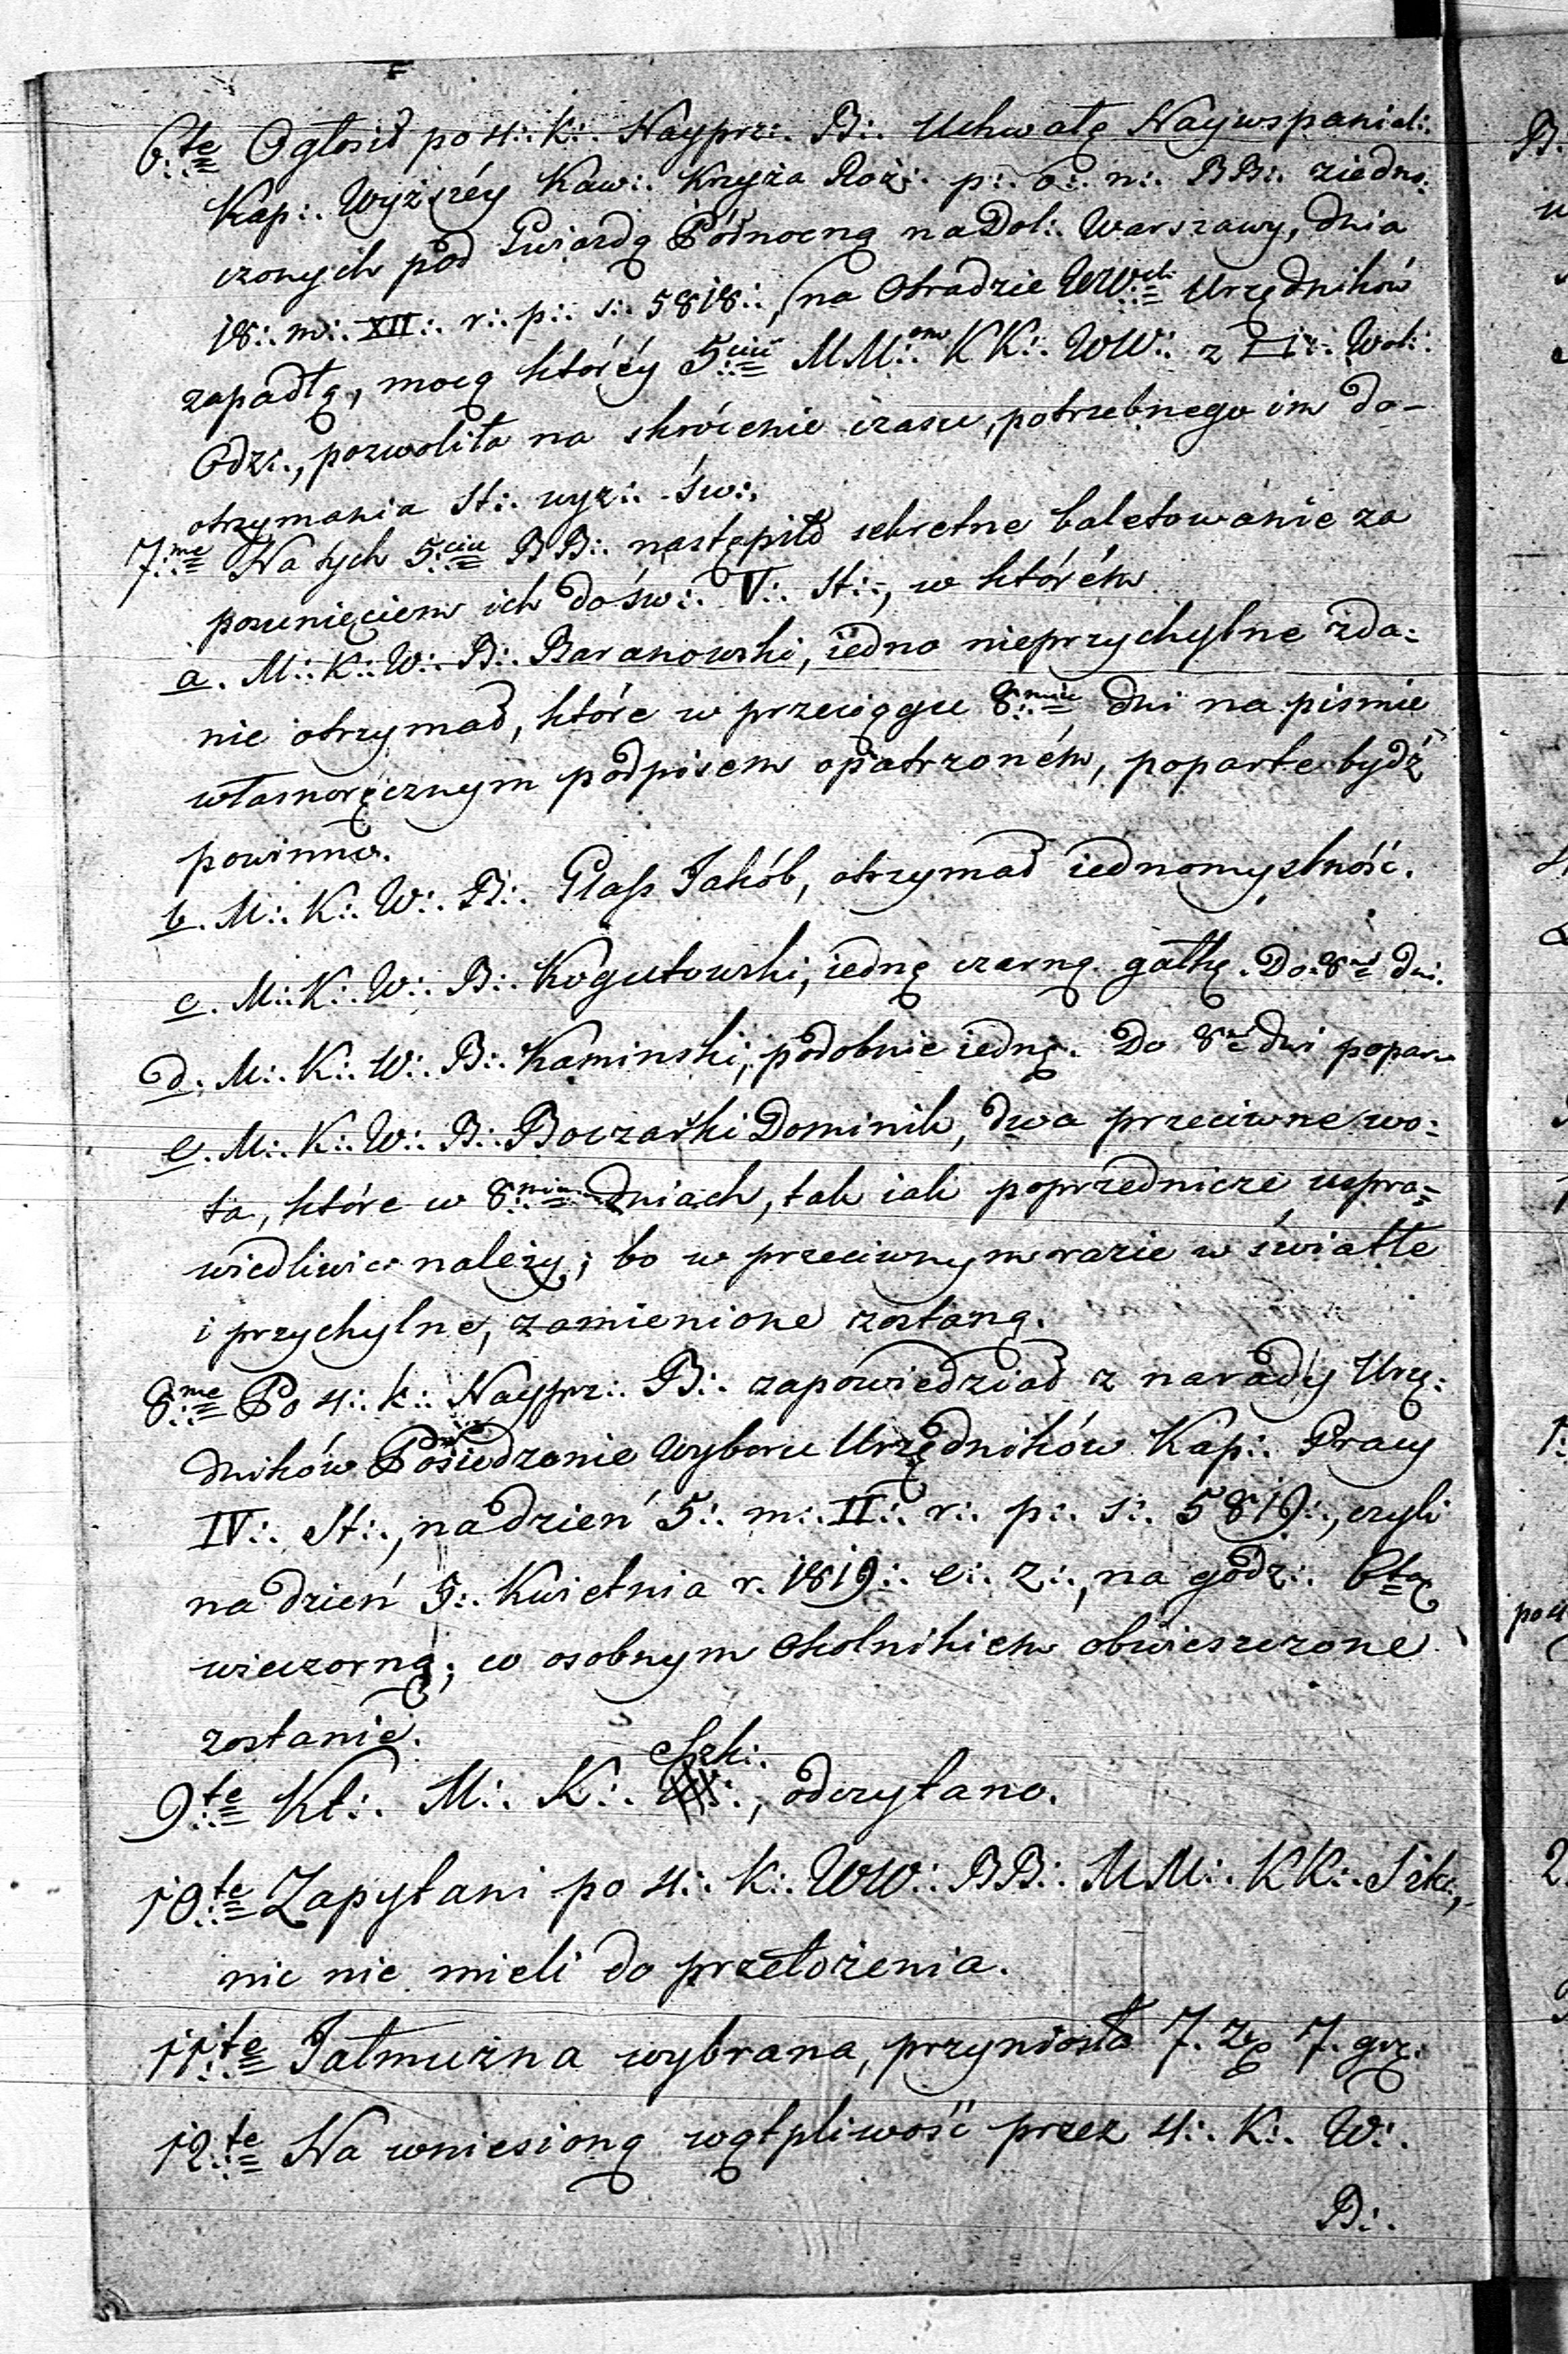 6:te Ogłosił po 4:. K:. Nayprz:. B:. Uchwałę Naywspaniel:.
Kap:. Wyższéy Kaw:. Krzyża Róż:. p:. o:. n:. BB:. ziedno:
czonych pod Gwiazdą Północną na Dol:. Warszawy, dnia
18:. m:. XII:. r:. p:. s:. 5818:., na Obradzie WW:ch Urzędników
zapadłą, mocą któréy 5:ciu MM:.om KK:. WW:. z Wol:.
Odzi., pozwoliła na skrócenie czasu, potrzebnego im do-
otrzymania St:. wyż:. św:.
7:me Na tych 5:ciu BB:. nastąpiło sekretne baletowanie za
posunięciem ich do św:. V:. St:., w którém
a. M:. K:. W:. B:. Baranowski, iedno nieprzychylne zda:
nie otrzymał, które w przeciągu 8:miu dni na piśmie
własnoręcznym podpisem opatrzoném, poparte bydź
powinno.
b. M:. K:. W:. B:. Glass Jakób, otrzymał iednomyślność.
c. M:. K:. W:. B:. Kogutowski, iedną czarną gałkę. Do 8:u dni.
d. M:. K:. W:. B:. Kaminski, podobnie iedną. Do 8u dni popar.
e. M:. K:. W:. B:. Boczarski Dominik, dwa przeciwne wo:
ta, które w 8:miu dniach, tak iak poprzednicze uspra=
wiedliwić należy; bo w przeciwnym razie w światłe
i przychylne, zamienione zostaną.
8:me Po 4:. K:. Nayprz:. B:. zapowiedział z narady Urzę:
dników Posiedzenie wyboru Urzędników Kap:. Pracy
IV:. St:., na dzień 5:. m:. II:. r:. p:. s:. 5819:., czyli
na dzień 5:. Kwietnia r. 1819:. e:. z:., na godz:. 6tą
wieczorną; co osobnym okolnikiem obwieszczone
zostanie.
9:te Kł:. M:. K:. Szk:., odczytano.
10:te Zapytani po 4:. K:. WW:. BB:. MM:. KK:. Szk:.,
nic nie mieli do przełożenia.
11:te Jałmużna wybrana, przyniosła 7. Zp 7. gr.
12:te Na wniesioną wątpliwość przez 4:. K:. W:.
B:.